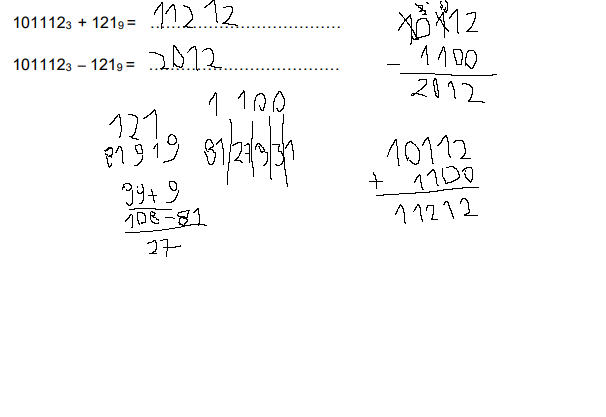 101112₃ + 121₉ = 11212
101112₃ – 121₉ = 2012
121
81 9 1 9
99 + 9
108 - 81
27
1 1 0 0
81 | 27 | 9 | 3 | 1
10112
- 1100
2012
10112
+ 1100
11212